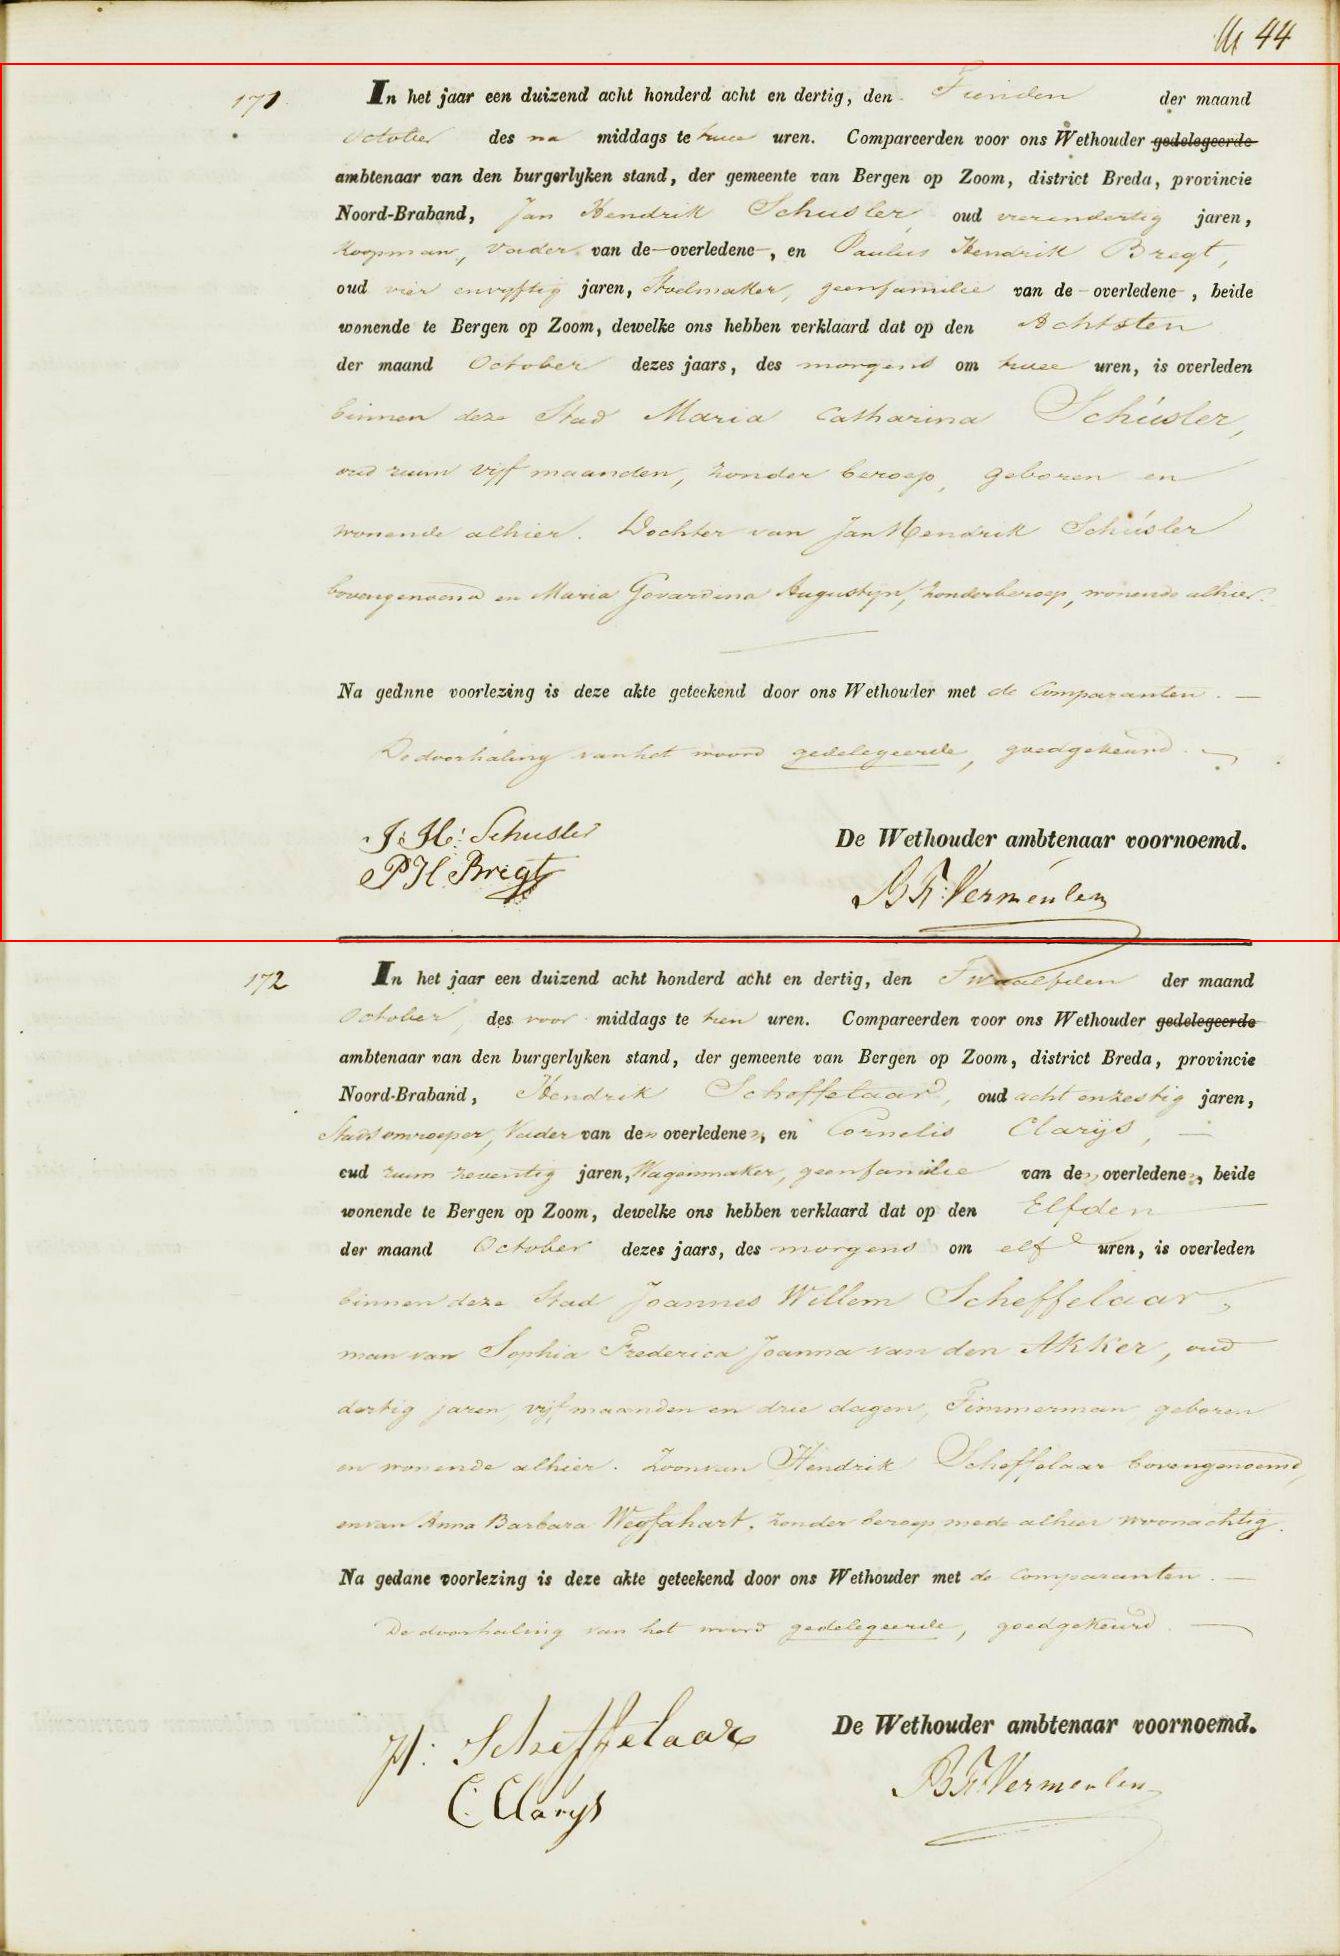 44
171 In het jaar een duizend acht honderd acht en dertig, den Tienden der maand
October des na middags te twee uren. Compareerden voor ons Wethouder gedelegeerde
ambtenaar van den burgerlyken stand, der gemeente van Bergen op Zoom, district Breda, provincie
Noord-Braband, Jan Hendrik Schusler, oud vierendertig jaren,
Koopman, Vader van de overledene, en Paulus Hendrik Bregt,
oud vier envyftig jaren, Stoelmaker, geenfamilie van de overledene, beide
wonende te Bergen op Zoom, dewelke ons hebben verklaard dat op den Achtsten
der maand October dezes jaars, des morgens om twee uren, is overleden
binnen deze Stad Maria Catharina Schúsler,
oud ruim vijf maanden, zonder beroep, geboren en
wonende alhier. Dochter van Jan Hendrik Schúsler
bovengenoemd en Maria Govardina Augustijn, zonderberoep, wonende alhier.
Na gednne voorlezing is deze akte geteekend door ons Wethouder met de Comparanten.
De doorhaling van het woord gedelegeerde, goedgekeurd.
J: H: Schusler
De Wethouder ambtenaar voornoemd.
P H Bregt
B F: Vermeulen
172 In het jaar een duizend acht honderd acht en dertig, den Twaalfden der maand
October, des voor middags te tien uren. Compareerden voor ons Wethouder gedelegeerde
ambtenaar van den burgerlyken stand, der gemeente van Bergen op Zoom, district Breda, provincie
Noord-Braband, Hendrik Scheffelaar, oud acht enzestig jaren,
Stadsomroeper, Vader van de overledene, en Cornelis Clarijs,
oud ruim zeventig jaren, Wagenmaker, geenfamilie van de overledene, beide
wonende te Bergen op Zoom, dewelke ons hebben verklaard dat op den Elfden
der maand October dezes jaars, des morgens om elf uren, is overleden
binnen deze Stad Joannes Willem Scheffelaar,
man van Sophia Frederica Joanna van den Akker, oud
dertig jaren, vijf maanden en drie dagen, Timmerman geboren
en wonende alhier. Zoon van Hendrik Scheffelaar bovengenoemd,
en van Anna Barbara Wegfahart, zonder beroep mede alhier woonachtig.
Na gedane voorlezing is deze akte geteekend door ons Wethouder met de Comparanten.
De doorhaling van het woord gedelegeerde, goedgekeurd.
H: Scheffelaar
De Wethouder ambtenaar voornoemd.
C. Clarijs
B F: Vermeulen